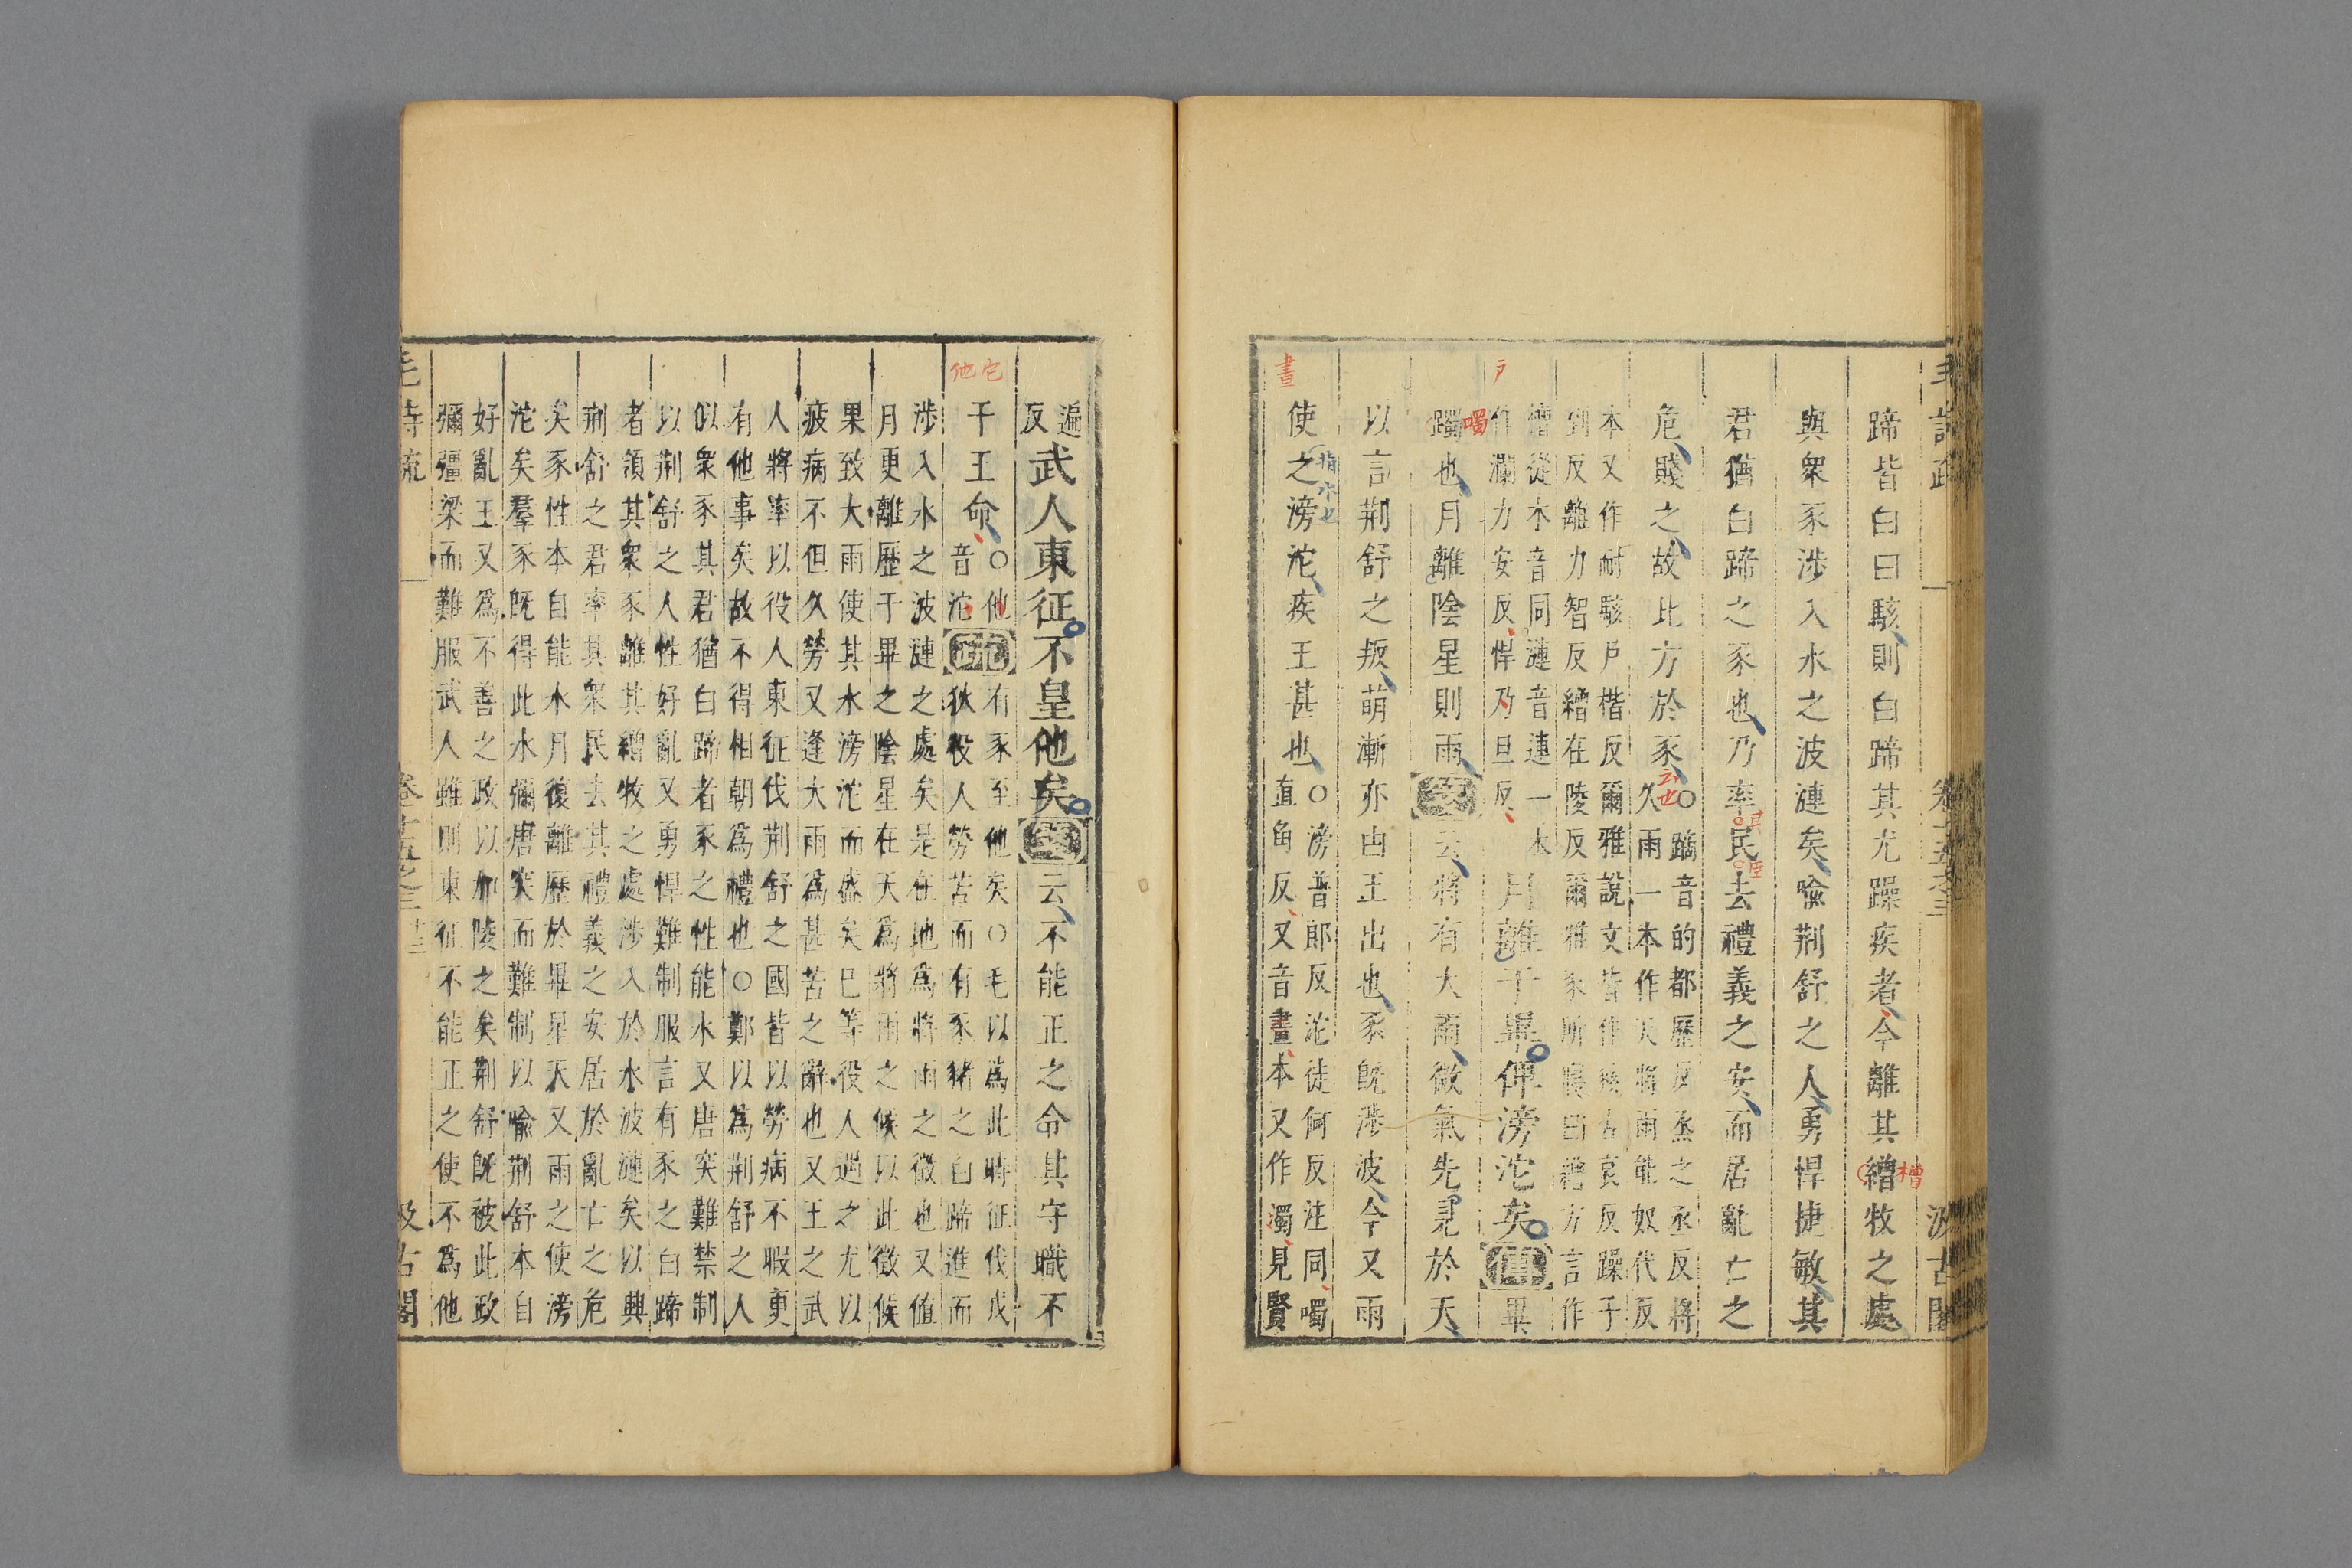 蹄皆白曰駭則白蹄其尤躁疾者今離其繒牧之處
與衆豕涉入水之波漣矣喩荆舒之人勇悍捷敏其
君猶白蹄之豕也乃率民去禮義之安而居亂亡之
危賤之故比方於豕○蹢音的都歷反烝之丞反將
久雨一本作天將雨能奴代反
本又作耐駭戶楷反爾雅說文皆作豥古哀反躁子
到反離力智反繒在陵反爾雅豕所寢曰繒方言作
橧從木音同漣音連一本
作瀾力安反悍乃旦反月離于畢俾滂沱矣傳畢
躅也月離陰星則雨箋云將有大雨微氣先見於天
以言荆舒之叛萌漸亦由王出也豕旣涉波今又雨
使之滂沱疾王甚也○滂普郎反沱徒何反注同噣
直角反又音畫本又作濁見賢
遍
反武人東征不皇他矣箋云不能正之命其守職不
干王命○他
音沱疏有豕至他矣○毛以爲此時征伐戍
狄役人勞苦而有豕豬之白蹄進而
涉入水之波漣之處矣是在地爲將雨之徵也又值
月更離歷于畢之陰星在天爲將雨之候以此徵候
果致大雨使其水滂沱而盛矣巳等役人遇之尤以
疲病不但久勞又逢大雨爲甚苦之辭也又王之武
人將率以役人東征伐荆舒之國皆以勞病不暇更
有他事矣故不得相朝爲禮也○鄭以爲荆舒之人
似衆豕其君猶白蹄者豕之性能水又唐突難禁制
以荆舒之人性好亂又勇悍難制服言有豕之白蹄
者領其衆豕離其繒牧之處涉入於水波漣矣以興
荆舒之君率其衆民去其禮義之安居於亂亡之危
矣豕性本自能水月復離歷於畢星天又雨之使滂
沱矣羣豕旣得此水彌唐突而難制以喩荆舒本自
好亂王又爲不善之政以加陵之矣荆舒旣被此政
彌彊梁而難服武人雖則東征不能正之使不爲他
毛詩疏 卷十五之三 汲古閣